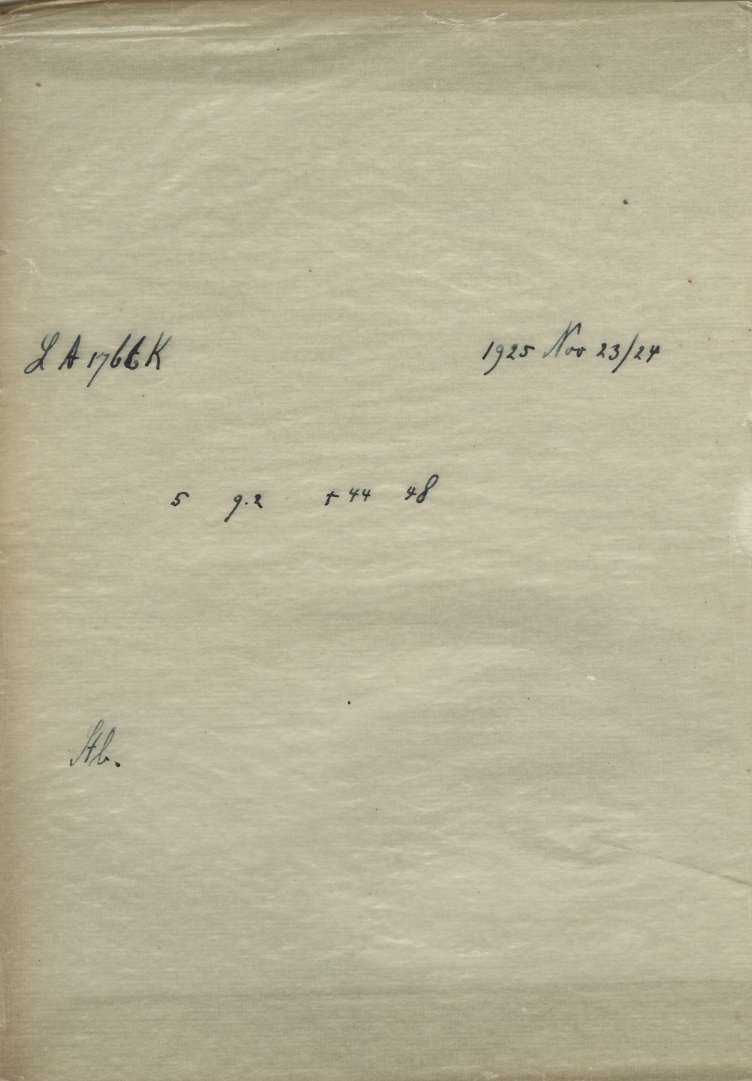 L A 1766 K 1925 Nov 23/24
5 9.2 + 44 48